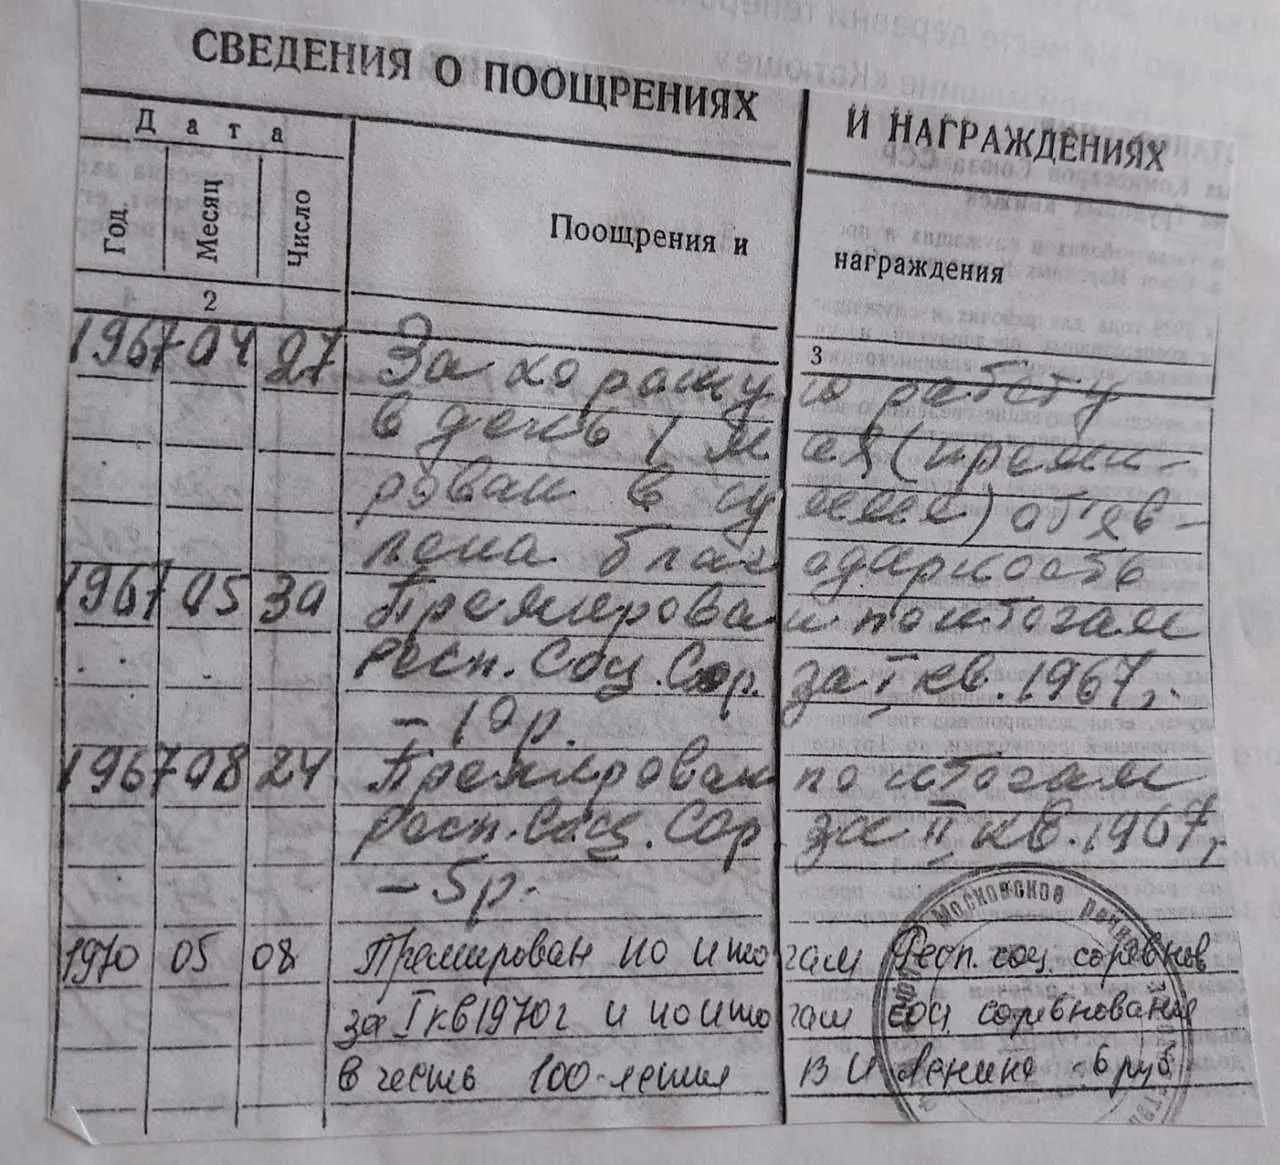 СВЕДЕНИЯ О ПООЩРЕНИЯХ И НАГРАЖДЕНИЯХ
Дата
Год Месяц Число Поощрения и награждения
2 3
1967 04 27 За хорошую работу
в день 1 мая (преми-
рован в сумме) объяв-
лена благодарность
1967 05 30 Премирован по итогам
Респ. Соц. Сор. за I кв. 1967г.
– 10р.
1967 08 24 Премирован по итогам
Респ. Соц. Сор за II кв. 1967г.
– 5р.
1970 05 08 Премирован по итогам Респ. соц. соревнов
за I кв 1970г и по итогам соц соревнования
в честь 100-летия В И Ленина 6 руб.
Московское